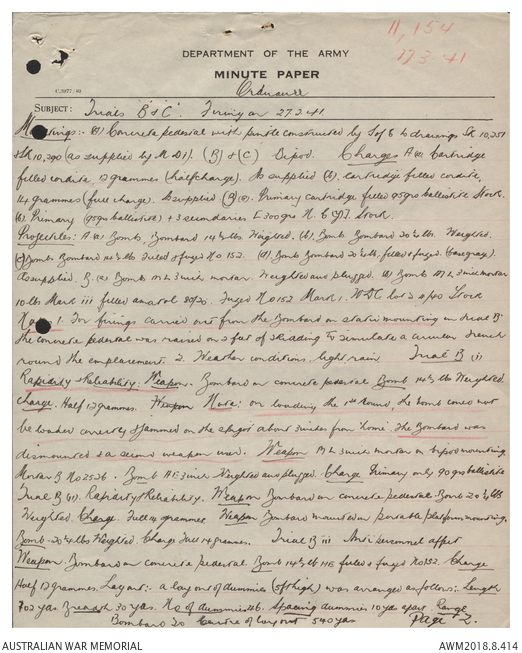 11,154
17.3.41
DEPARTMENT OF THE ARMY
MINUTE PAPER
Ordnance
SUBJECT: Trials "B" & "C". Firing on 27.2.41.
Mountings:- (A) Concrete pedestal with pintle constructed by S of E to drawings SK 10,251
& SK 10,290 (as supplied by M.D.I.) (B) & (C) Bipod. Charges A (a) Cartridge
filled cordite, 12 grammes (half charge). As supplied (b). cartridge filled cordite,
14 grammes (full charge). As supplied. (B) (a). Primary cartridge filled 95grs ballistite Stock.
(b). Primary (95grs ballistite) + 3 secondaries Stock.
Projectiles: A. (a) Bomb, Bombard 14½ lbs Weighted. (b). Bomb Bombard 20½ lbs. Weighted.
Bomb Bombard 14½ lbs Filled & fuzed No 152. (d) Bomb Bombard 20½ lbs. filled & fuzed.
As supplied. B. (a) Bomb M L 3 inch mortar. Weighted and plugged. (b) Bomb M L 3 inch mortar
10 lbs Mark III filled amatol 80/20. Fuzed No 152 Mark 1. Stock
Notes 1. For firings carried out from the Bombard on static mounting in trial "B"
the concrete pedestal was raised on 2 feet of to simulate a circular trench
round the emplacement. 2. Weather conditions, light rain Trial B (i)
Rapidity & Reliability. Weapon. Bombard on concrete pedestal Bomb 14½ lbs Weighted.
Charge. Half 12 grammes. Weapon Note: on loading the 1st round, the bomb could not
be loaded correctly & jammed on the spigot about 3 inches from 'home'. The Bombard was
dismounted and a second weapon used. Weapon M L 3 inch mortar on bipod mounting
Mortar B No 2526. Bomb HE 3 inch Weighted and plugged. Charge Primary only 90 grs ballistite
Trial B (ii). Rapidity & Reliability. Weapon Bombard on concrete pedestal. Bomb 20½ lbs
Weighted. Charge. Full 14 grammes Weapon Bombard mounted on portable/platform mounting.
Bomb - 20½ lbs Weighted. Charge Full 14 grammes. Trial B iii Anti personnel effect
Weapon. Bombard on concrete pedestal. Bomb 14½ lbs HE filled & fuzed No 152. Charge
Half 12 grammes. Layout:- a layout of dummies (5ft high) was arranged as follows: Length
70 yds Breadth 30 yds. No of dummies 46. Spacing dummies 10 yds apart Range
Bombard to Centre of layout 540 yds Page 2.
AUSTRALIAN WAR MEMORIAL
AWM2018.8.414